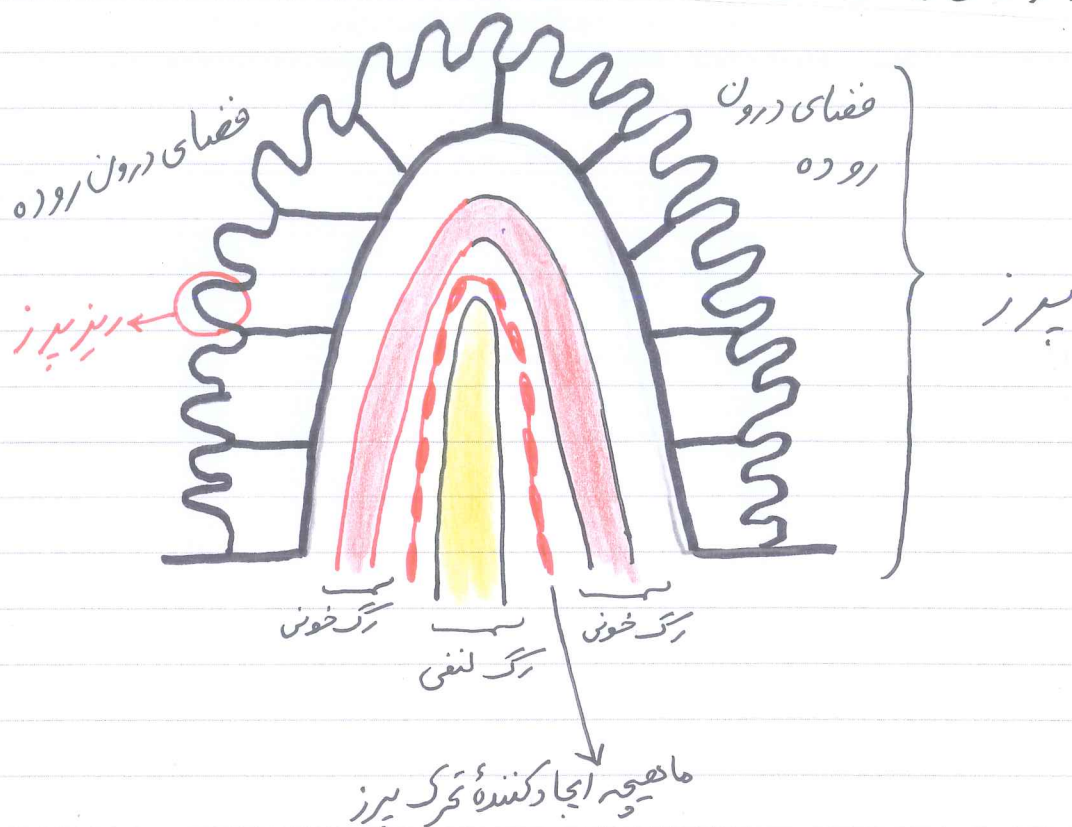 فضای درون
روده
فضای درون روده
پرز
ریزپرز
رگ خونی
رگ خونی
رگ لنفی
ماهیچه ایجادکنندهٔ تحرک پرز